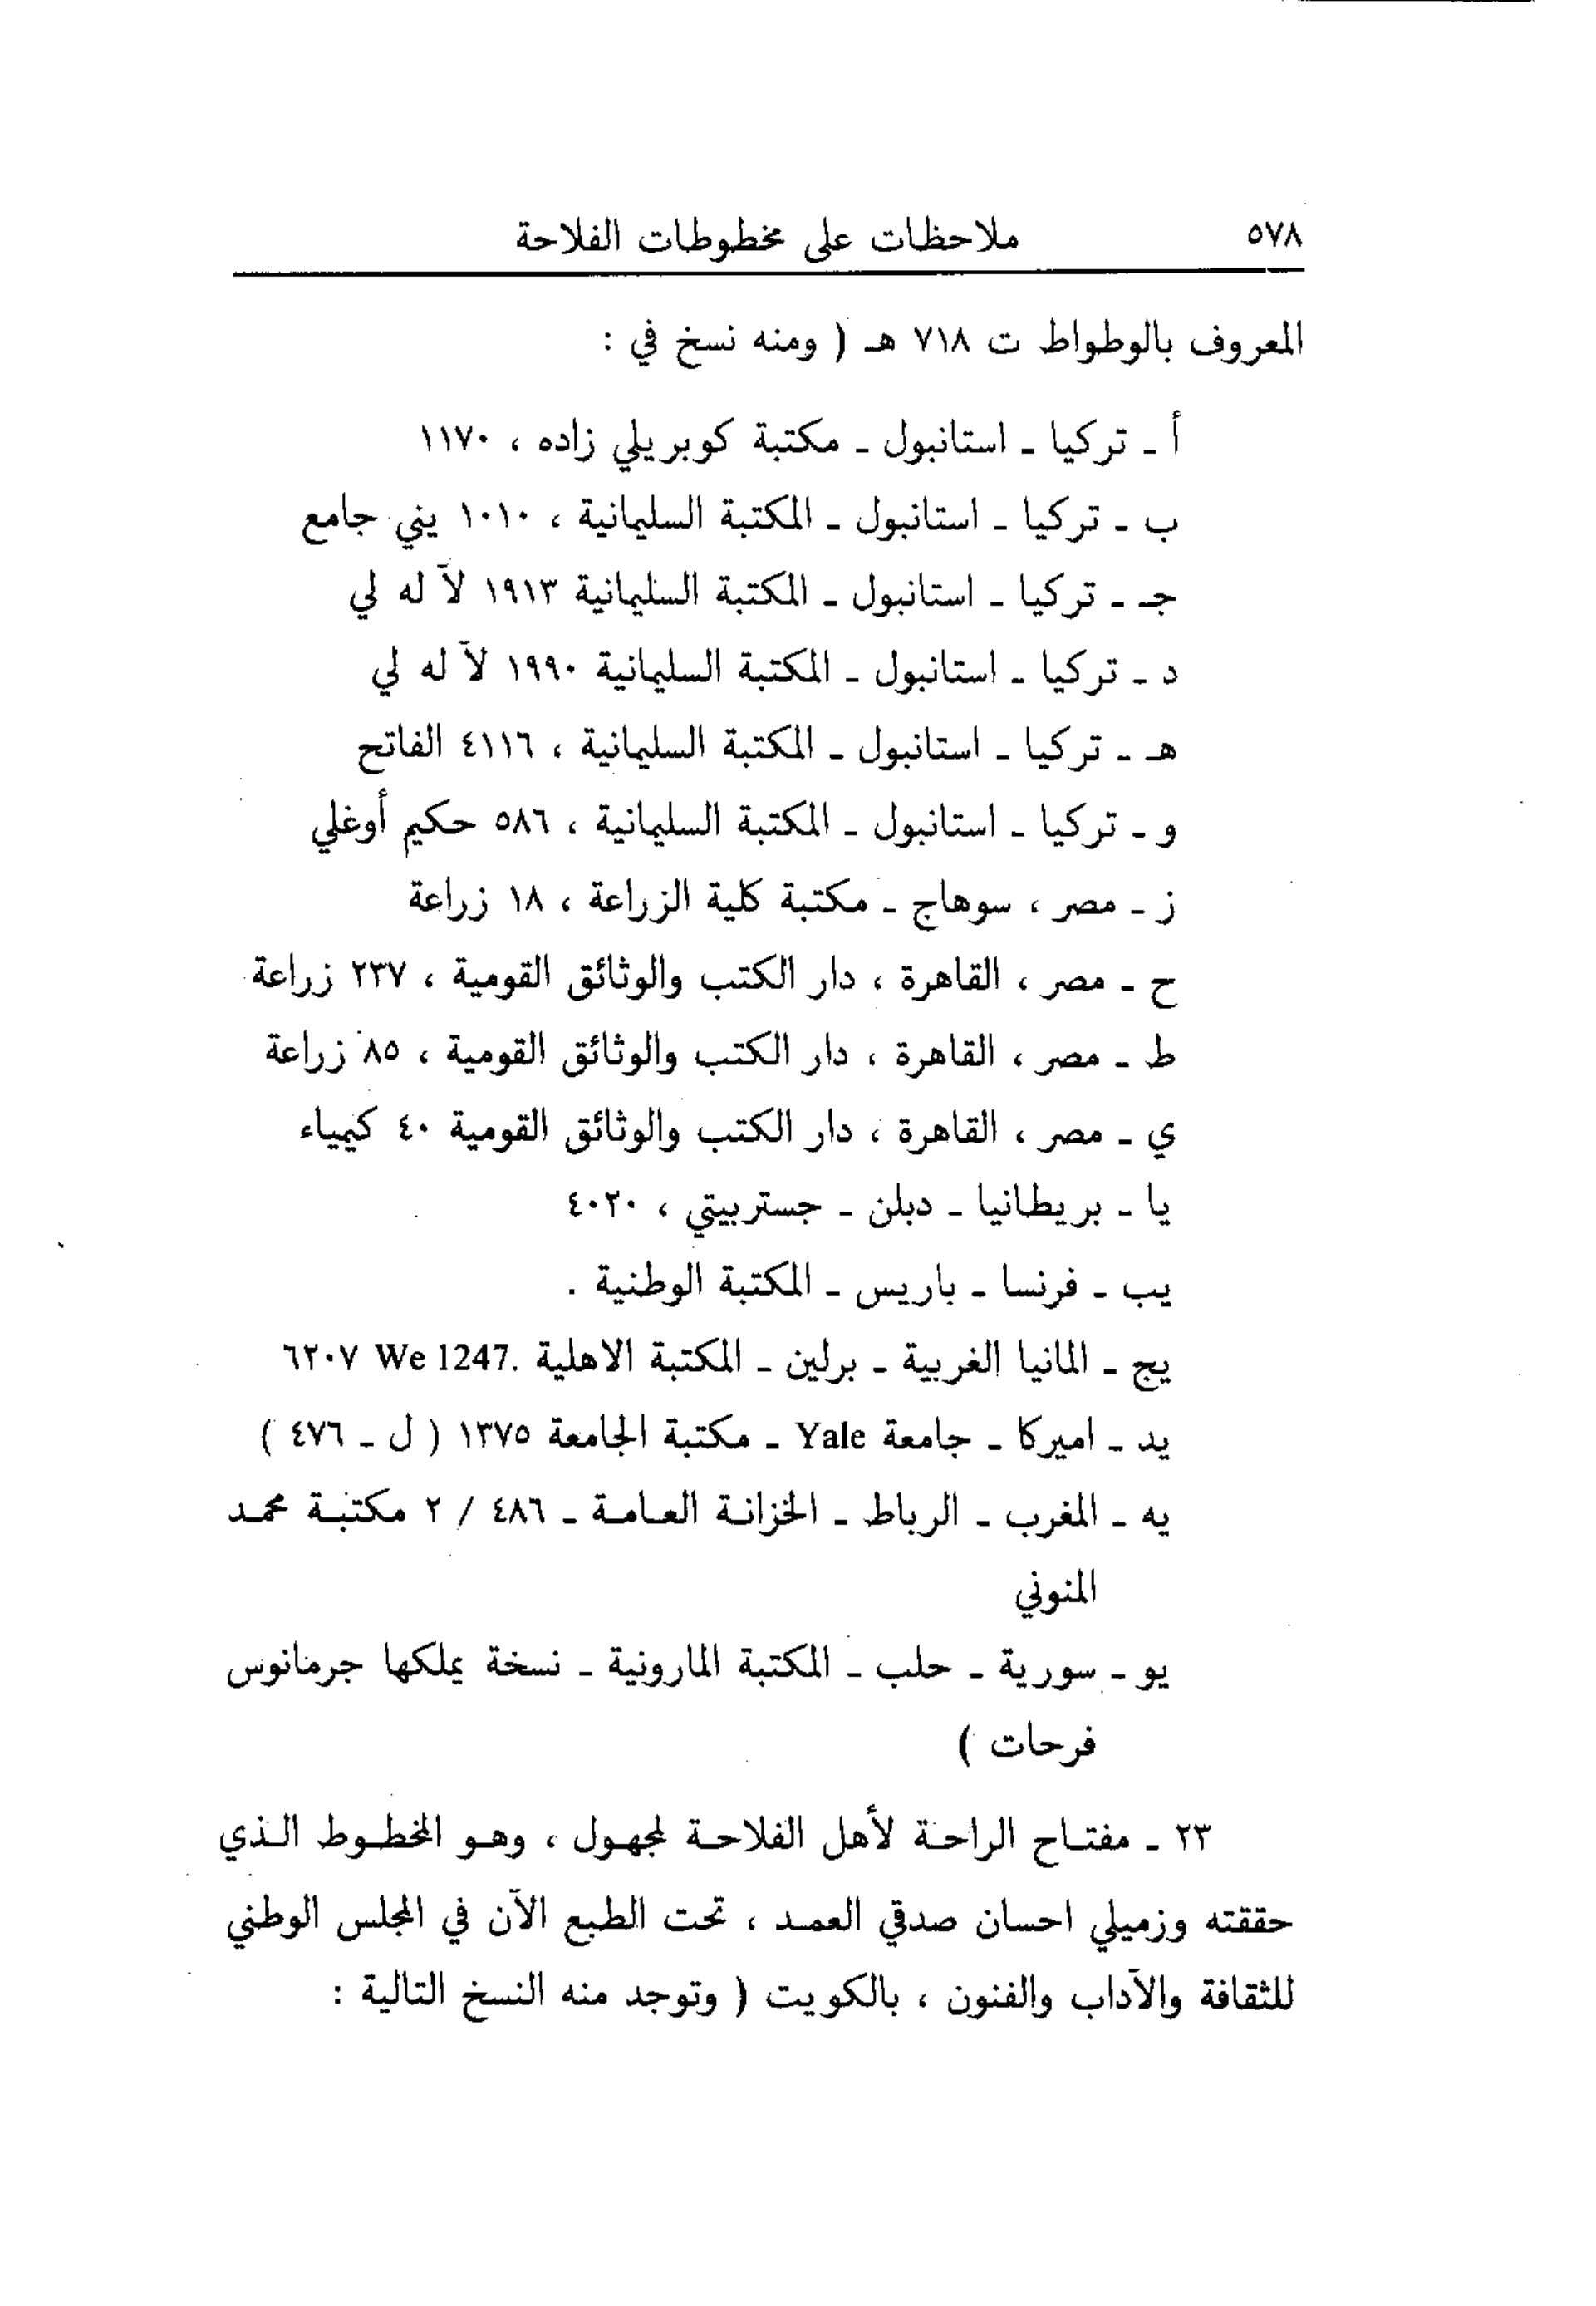 ٥٧٨ ملاحظات على مخطوطات الفلاحة
المعروف بالوطواط ت ٧١٨ هـ ( ومنه نسخ في :
أ ـ تركيا ـ استانبول ـ مكتبة كوبريلي زاده ، ١١٧٠
ب ـ تركيا ـ استانبول ـ المكتبة السليمانية ، ١٠١٠ يني جامع
جـ ـ تركيا ـ استانبول ـ المكتبة السليمانية ١٩١٣ لآ له لي
د ـ تركيا ـ استانبول ـ المكتبة السليمانية ١٩٩٠ لآ له لي
هـ ـ تركيا ـ استانبول ـ المكتبة السليمانية ، ٤١١٦ الفاتح
و ـ تركيا ـ استانبول ـ المكتبة السليمانية ، ٥٨٦ حكيم أوغلي
ز ـ مصر ، سوهاج ـ مكتبة كلية الزراعة ، ١٨ زراعة
ح ـ مصر ، القاهرة ، دار الكتب والوثائق القومية ، ٢٣٧ زراعة
ط ـ مصر ، القاهرة ، دار الكتب والوثائق القومية ، ٨٥ زراعة
ي ـ مصر ، القاهرة ، دار الكتب والوثائق القومية ٤٠ كيمياء
يا ـ بريطانيا ـ دبلن ـ جستربيتي ، ٤٠٢٠
يب ـ فرنسا ـ باريس ـ المكتبة الوطنية .
يج ـ المانيا الغربية ـ برلين ـ المكتبة الاهلية .We 1247 ٦٢٠٧
يد ـ اميركا ـ جامعة Yale ـ مكتبة الجامعة ١٣٧٥ ( ل ـ ٤٧٦ )
يه ـ المغرب ـ الرباط ـ الخزانة العامة ـ ٤٨٦ / ٢ مكتبة محمد
المنوني
يو ـ سورية ـ حلب ـ المكتبة المارونية ـ نسخة يملكها جرمانوس
فرحات )
٢٣ ـ مفتاح الراحة لأهل الفلاحة لمجهول ، وهو المخطوط الذي
حققته وزميلي احسان صدقي العمد ، تحت الطبع الآن في المجلس الوطني
للثقافة والآداب والفنون ، بالكويت ( وتوجد منه النسخ التالية :